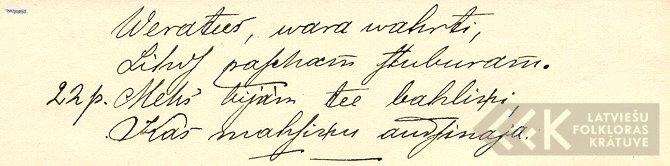 Weratees, wara wahrti,
Lihds pascham stuburam.
22 p. Mehs bijām tee bahlixi,
Kas mahsixu audsinaja.
LATVIEŠU
FOLKLORAS
KRĀTUVE